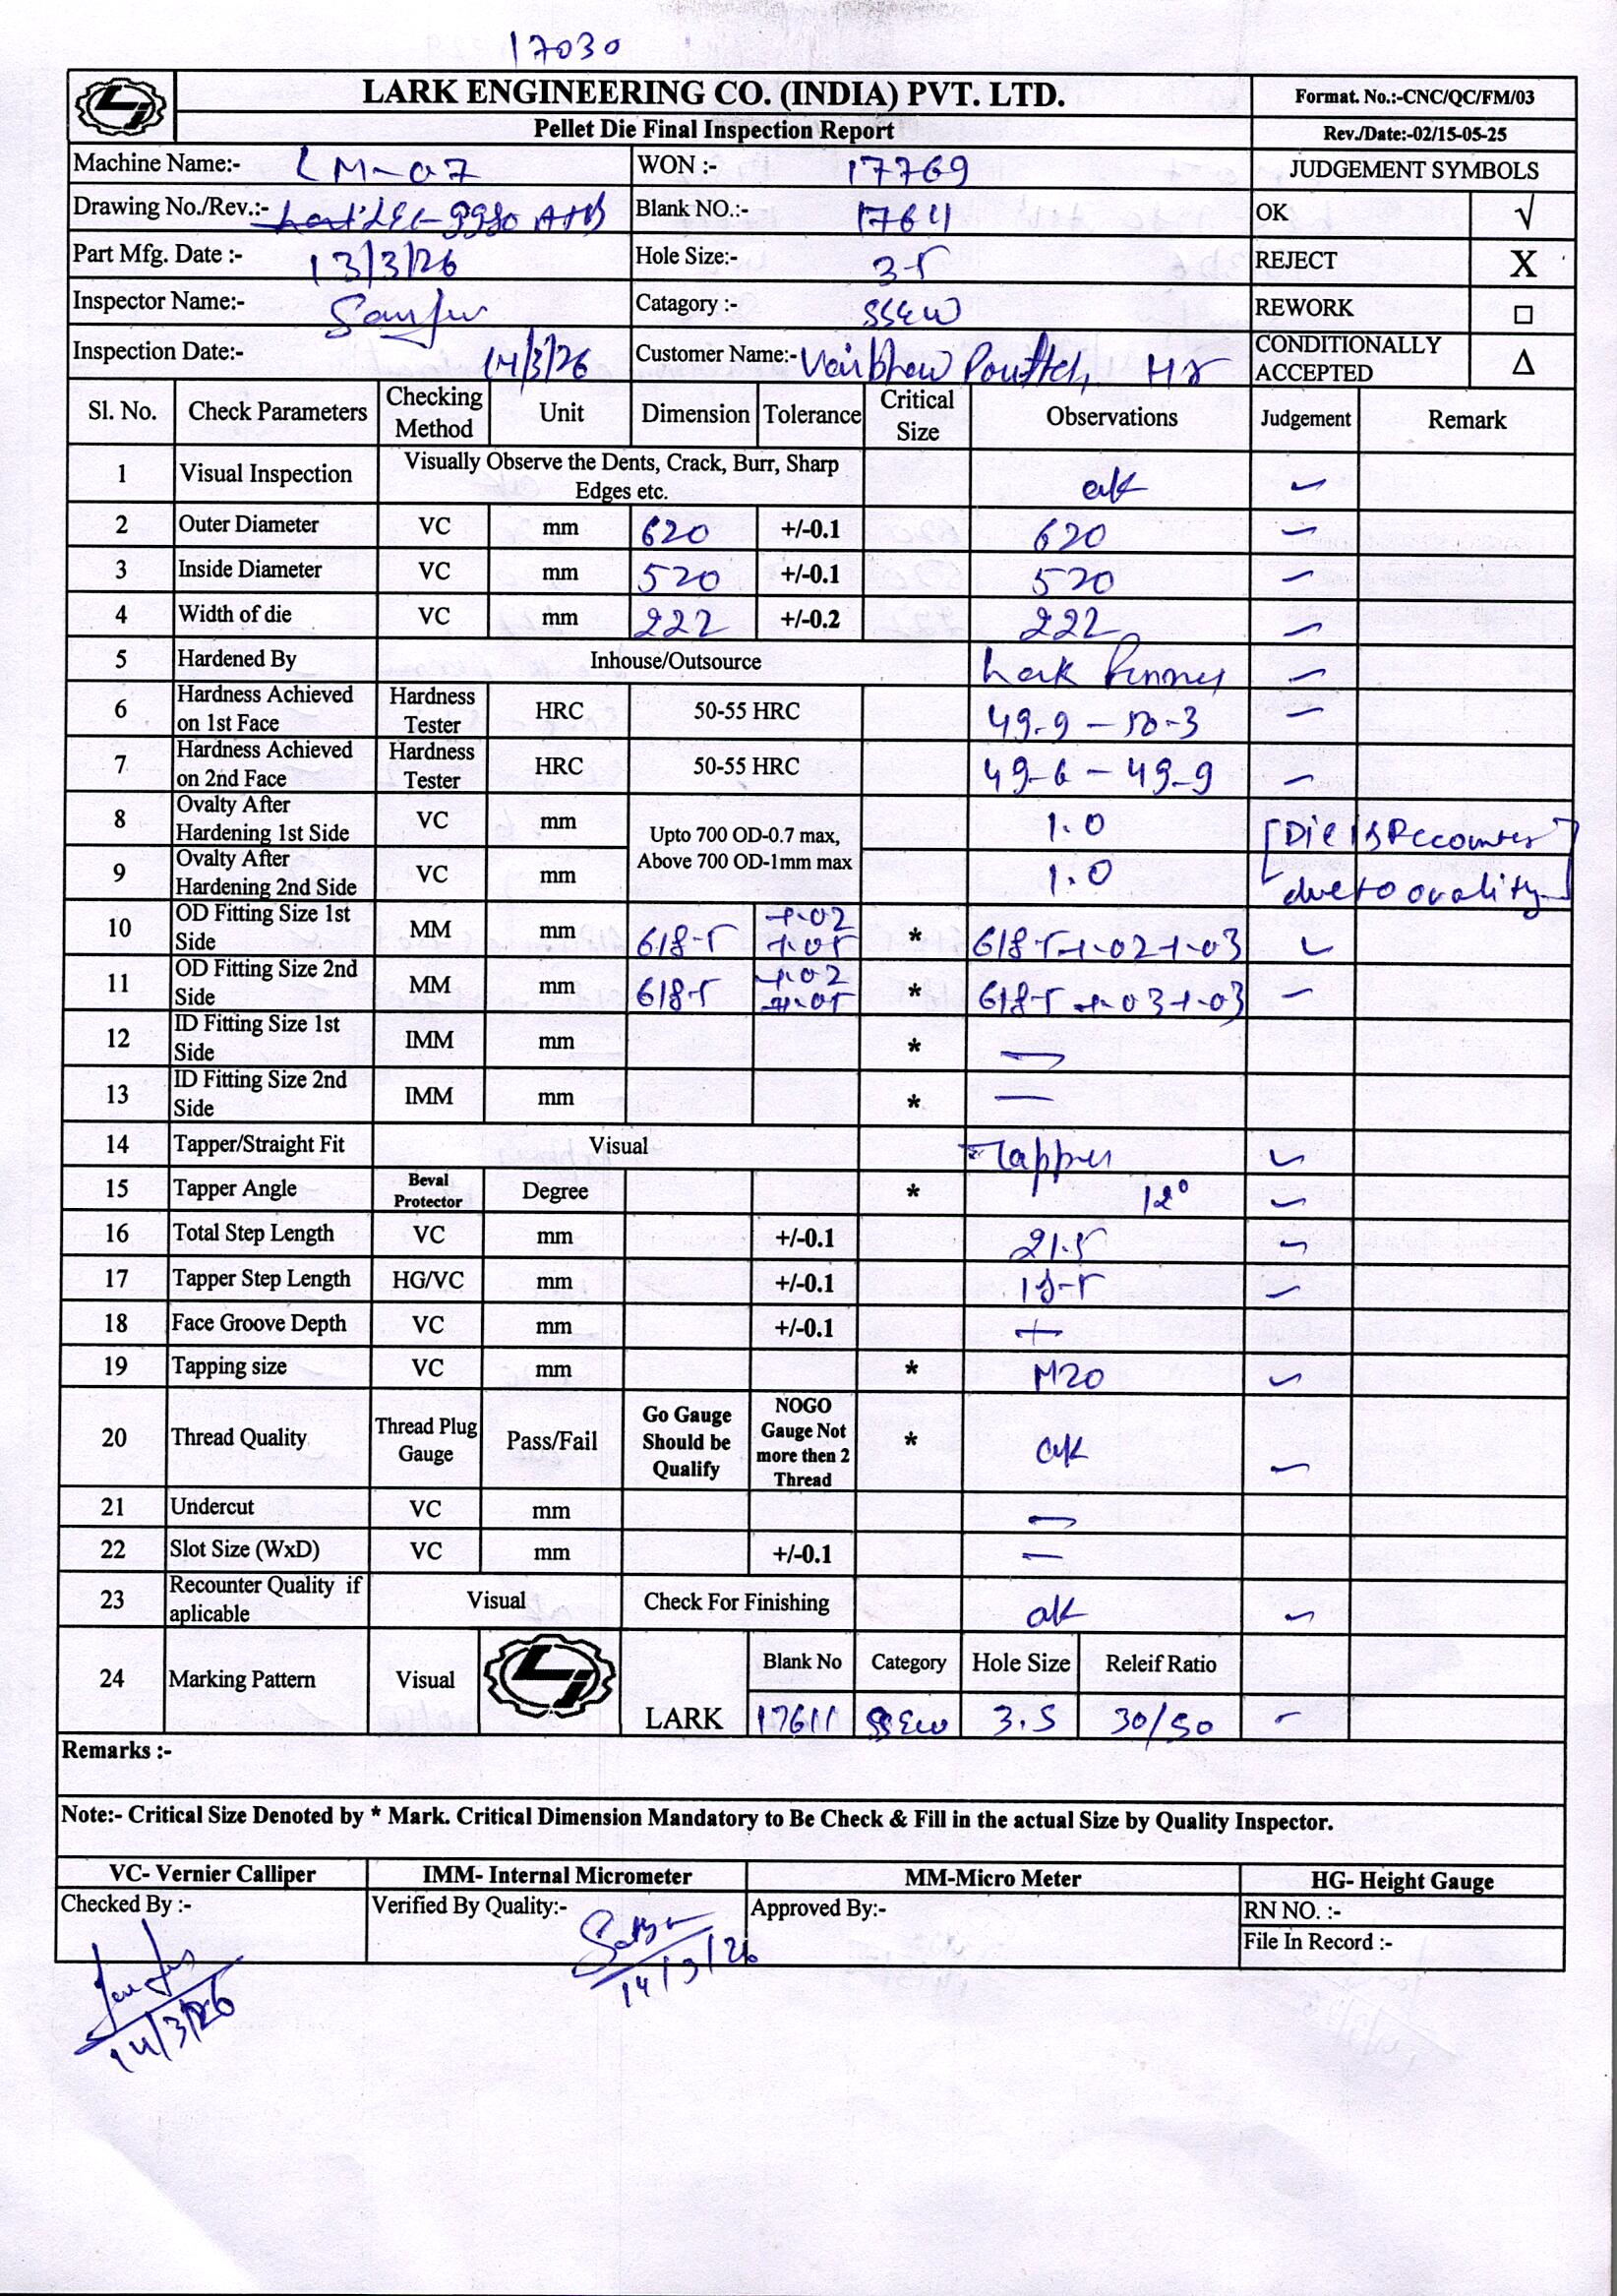 17030
LARK ENGINEERING CO. (INDIA) PVT. LTD.
Format. No.:-CNC/QC/FM/03
Pellet Die Final Inspection Report
Rev./Date:-02/15-05-25
Machine Name:- LM-07 WON :- 17769 JUDGEMENT SYMBOLS
Drawing No./Rev.:- 9980 Blank NO.:- 17611 OK √
Part Mfg. Date :- 13/3/26 Hole Size:- 3-5 REJECT X
Inspector Name:- Catagory :- SSEW REWORK □
Inspection Date:- 14/3/26 Customer Name:- CONDITIONALLY ACCEPTED Δ
Sl. No. Check Parameters Checking Method Unit Dimension Tolerance Critical Size Observations Judgement Remark
1 Visual Inspection Visually Observe the Dents, Crack, Burr, Sharp Edges etc. ok
2 Outer Diameter VC mm 620 +/-0.1 620
3 Inside Diameter VC mm 520 +/-0.1 520
4 Width of die VC mm 222 +/-0.2 222
5 Hardened By Inhouse/Outsource Lark
6 Hardness Achieved on 1st Face Hardness Tester HRC 50-55 HRC 49-9 - 50-3
7 Hardness Achieved on 2nd Face Hardness Tester HRC 50-55 HRC 49-6 - 49-9
8 Ovalty After Hardening 1st Side VC mm Upto 700 OD-0.7 max, Above 700 OD-1mm max 1.0 [Die is Recounter
9 Ovalty After Hardening 2nd Side VC mm 1.0 due to ovality]
10 OD Fitting Size 1st Side MM mm 618-5 +.02 +.05 * 618-5+.02+.03
11 OD Fitting Size 2nd Side MM mm 618-5 +.02 +.05 * 618-5+.03+.03
12 ID Fitting Size 1st Side IMM mm *
13 ID Fitting Size 2nd Side IMM mm *
14 Tapper/Straight Fit Visual Tapper
15 Tapper Angle Beval Protector Degree * 12°
16 Total Step Length VC mm +/-0.1 21.5
17 Tapper Step Length HG/VC mm +/-0.1
18 Face Groove Depth VC mm +/-0.1
19 Tapping size VC mm * M20
20 Thread Quality Thread Plug Gauge Pass/Fail Go Gauge Should be Qualify NOGO Gauge Not more then 2 Thread * ok
21 Undercut VC mm
22 Slot Size (WxD) VC mm +/-0.1
23 Recounter Quality if aplicable Visual Check For Finishing ok
24 Marking Pattern Visual LARK Blank No Category Hole Size Releif Ratio
17611 SSEW 3.5 30/50
Remarks :-
Note:- Critical Size Denoted by * Mark. Critical Dimension Mandatory to Be Check & Fill in the actual Size by Quality Inspector.
VC- Vernier Calliper IMM- Internal Micrometer MM-Micro Meter HG- Height Gauge
Checked By :- Verified By Quality:- Approved By:- RN NO. :-
File In Record :-
14/3/26
14/3/26